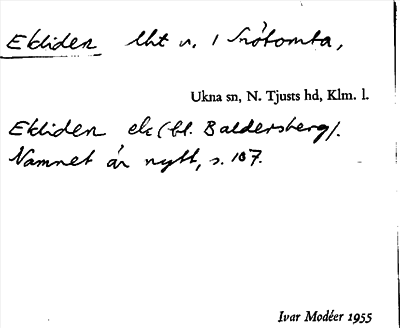 Ekliden lht u. 1 Snötomta,
Ukna sn, N. Tjusts hd, Klm. l.
Ekliden ek (bl. Baldersberg).
Namnet är nytt, s. 107.
Ivar Modéer 1955